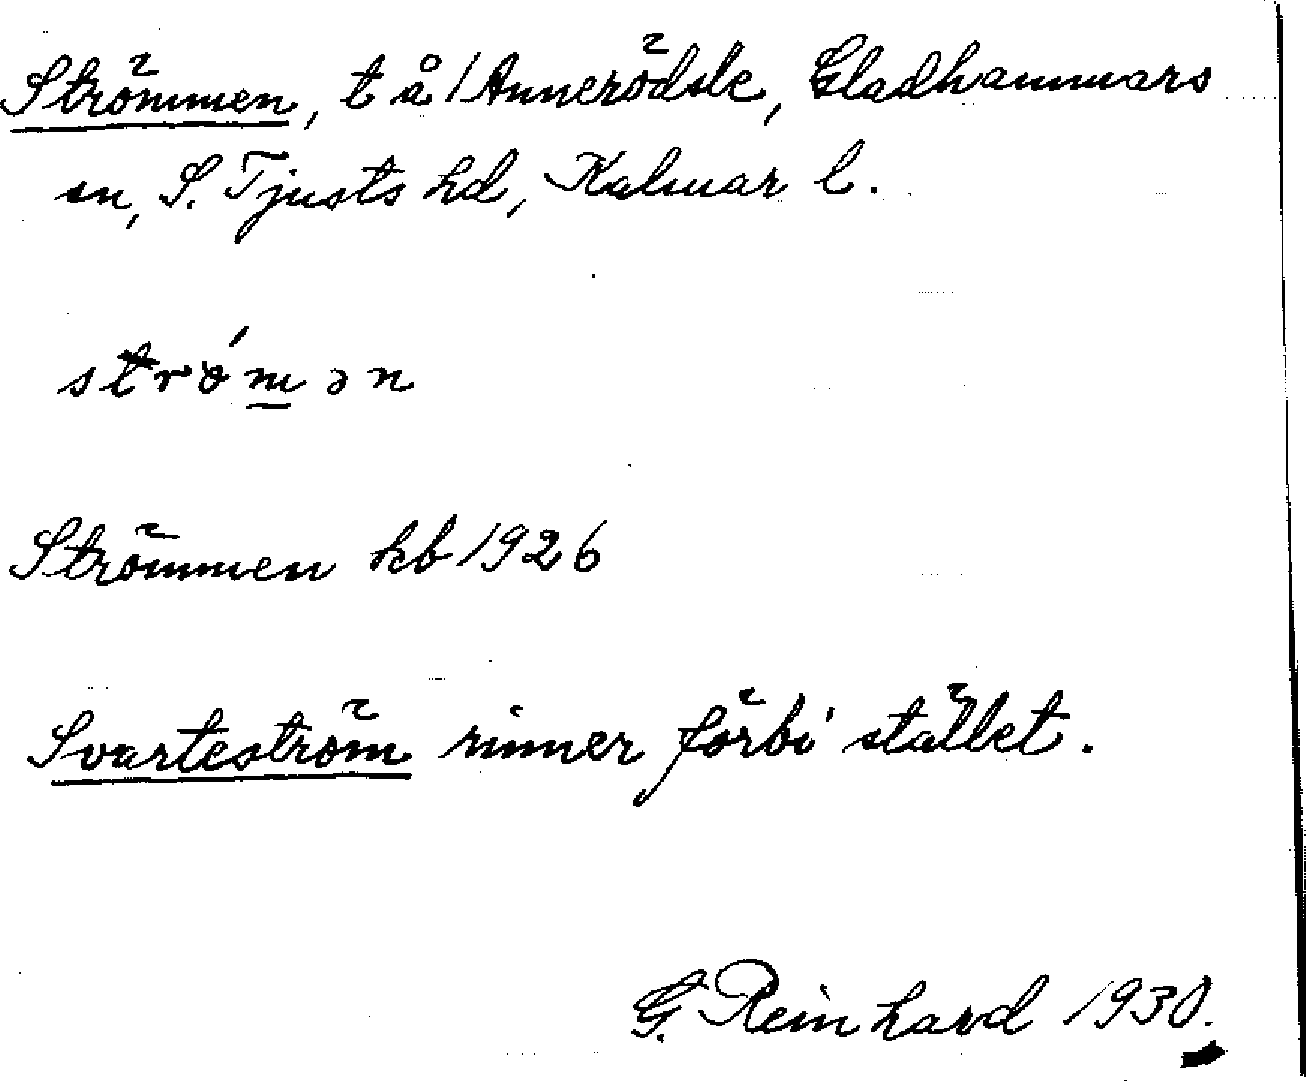 Strömmen, t å 1 Anneródsle, Gladhammars
sn, S. Tjusts hd, Kalmar l.
strǿmən
Strömmen kb 1926
Svarteström rinner förbi stället.
G. Reinhard 1930.